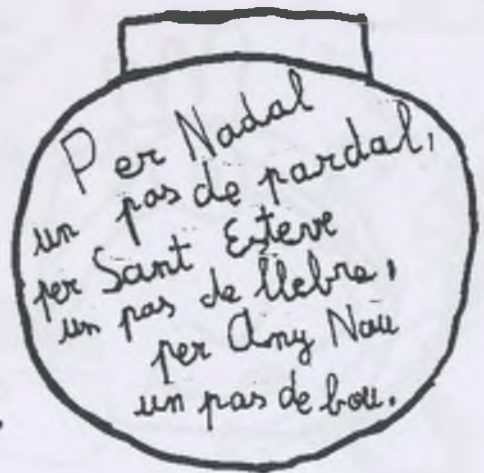 Per Nadal
un pas de pardal,
per Sant Esteve
un pas de llebre,
per Any Nou
un pas de bou.